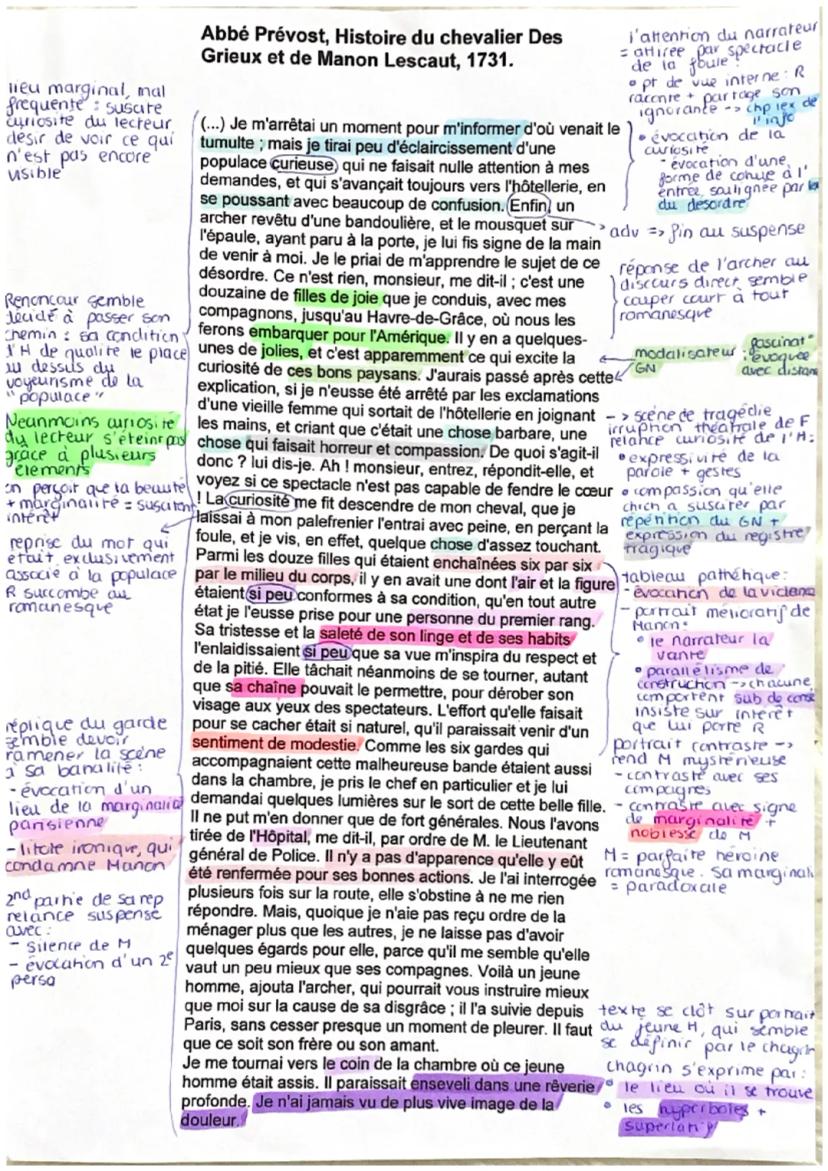 Abbé Prévost, Histoire du chevalier Des
Grieux et de Manon Lescaut, 1731.
lieu marginal, mal
fréquenté : suscite
curiosité du lecteur
désir de voir ce qui
n'est pas encore
visible
Renoncour semble
décidé à passer son
chemin : sa condition
d'H de qualité le place
au dessus du
voyeurisme de la
"populace"
Néanmoins curiosité
du lecteur s'éteint pas
grâce à plusieurs
éléments
on perçoit que la beauté
+ marginalité = suscitant
intérêt
reprise du mot qui
était exclusivement
associé à la populace
R succombe au
romanesque
réplique du garde
semble devoir
ramener la scène
à sa banalité :
- évocation d'un
lieu de la marginalité
parisienne
- litote ironique, qui
condamne Manon
2nd partie de sa rep
relance suspense
avec :
- silence de M
- évocation d'un 2e
perso
(...) Je m'arrêtai un moment pour m'informer d'où venait le
tumulte ; mais je tirai peu d'éclaircissement d'une
populace curieuse, qui ne faisait nulle attention à mes
demandes, et qui s'avançait toujours vers l'hôtellerie, en
se poussant avec beaucoup de confusion. Enfin, un
archer revêtu d'une bandoulière, et le mousquet sur
l'épaule, ayant paru à la porte, je lui fis signe de la main
de venir à moi. Je le priai de m'apprendre le sujet de ce
désordre. Ce n'est rien, monsieur, me dit-il ; c'est une
douzaine de filles de joie que je conduis, avec mes
compagnons, jusqu'au Havre-de-Grâce, où nous les
ferons embarquer pour l'Amérique. Il y en a quelques-
unes de jolies, et c'est apparemment ce qui excite la
curiosité de ces bons paysans. J'aurais passé après cette
explication, si je n'eusse été arrêté par les exclamations
d'une vieille femme qui sortait de l'hôtellerie en joignant
les mains, et criant que c'était une chose barbare, une
chose qui faisait horreur et compassion. De quoi s'agit-il
donc ? lui dis-je. Ah ! monsieur, entrez, répondit-elle, et
voyez si ce spectacle n'est pas capable de fendre le cœur
! La curiosité me fit descendre de mon cheval, que je
laissai à mon palefrenier l'entrai avec peine, en perçant la
foule, et je vis, en effet, quelque chose d'assez touchant.
Parmi les douze filles qui étaient enchaînées six par six
par le milieu du corps, il y en avait une dont l'air et la figure
étaient si peu conformes à sa condition, qu'en tout autre
état je l'eusse prise pour une personne du premier rang.
Sa tristesse et la saleté de son linge et de ses habits
l'enlaidissaient si peu que sa vue m'inspira du respect et
de la pitié. Elle tâchait néanmoins de se tourner, autant
que sa chaîne pouvait le permettre, pour dérober son
visage aux yeux des spectateurs. L'effort qu'elle faisait
pour se cacher était si naturel, qu'il paraissait venir d'un
sentiment de modestie. Comme les six gardes qui
accompagnaient cette malheureuse bande étaient aussi
dans la chambre, je pris le chef en particulier et je lui
demandai quelques lumières sur le sort de cette belle fille.
Il ne put m'en donner que de fort générales. Nous l'avons
tirée de l'Hôpital, me dit-il, par ordre de M. le Lieutenant
général de Police. Il n'y a pas d'apparence qu'elle y eût
été renfermée pour ses bonnes actions. Je l'ai interrogée
plusieurs fois sur la route, elle s'obstine à ne me rien
répondre. Mais, quoique je n'aie pas reçu ordre de la
ménager plus que les autres, je ne laisse pas d'avoir
quelques égards pour elle, parce qu'il me semble qu'elle
vaut un peu mieux que ses compagnes. Voilà un jeune
homme, ajouta l'archer, qui pourrait vous instruire mieux
que moi sur la cause de sa disgrâce ; il l'a suivie depuis
Paris, sans cesser presque un moment de pleurer. Il faut
que ce soit son frère ou son amant.
Je me tournai vers le coin de la chambre où ce jeune
homme était assis. Il paraissait enseveli dans une rêverie
profonde. Je n'ai jamais vu de plus vive image de la
douleur.
l'attention du narrateur
= attirée par spectacle
de la foule :
• pt de vue interne : R
raconte + partage son
ignorance --> chp lex de
l'info
• évocation de la
curiosité
- évocation d'une
forme de cohue à l'
entrée, soulignée par lex
du désordre
adv => fin au suspense
réponse de l'archer au
discours direct semble
couper court à tout
romanesque
modalisateur :
GN
fascinat°
évoquée
avec distance
--> scène de tragédie
irruption théâtrale de F
relance curiosité de l'H :
• expressivité de la
parole + gestes
• compassion qu'elle
chich a susciter par
répétition du GN +
expression du registre
tragique
tableau pathétique :
- évocation de la violence
- portrait mélioratif de
Manon :
• le narrateur la
vante
• parallélisme de
construction --> chacune
comportent sub de consé
insiste sur intérêt
que lui porte R
portrait contraste -->
rend M mystérieuse
- contraste avec ses
compagnes
- contraste avec signe
de marginalité +
noblesse de M
M = parfaite héroïne
romanesque. Sa marginali
= paradoxale
texte se clôt sur portrait
du jeune H, qui semble
se définir par le chagrin
chagrin s'exprime par :
• le lieu où il se trouve
• les hyperboles +
superlatif